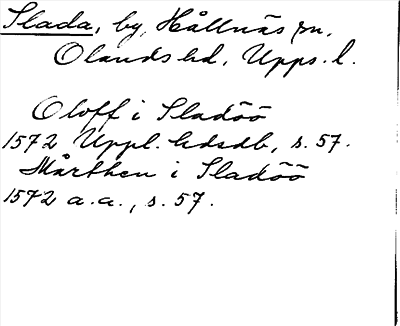 Slada, by, Hållnäs sn,
Olands hd, Upps. l.
Oloff i Sladöö
1572 Uppl. hdsdb, s. 57.
Mårthen i Sladöö
1572 a.a., s. 57.